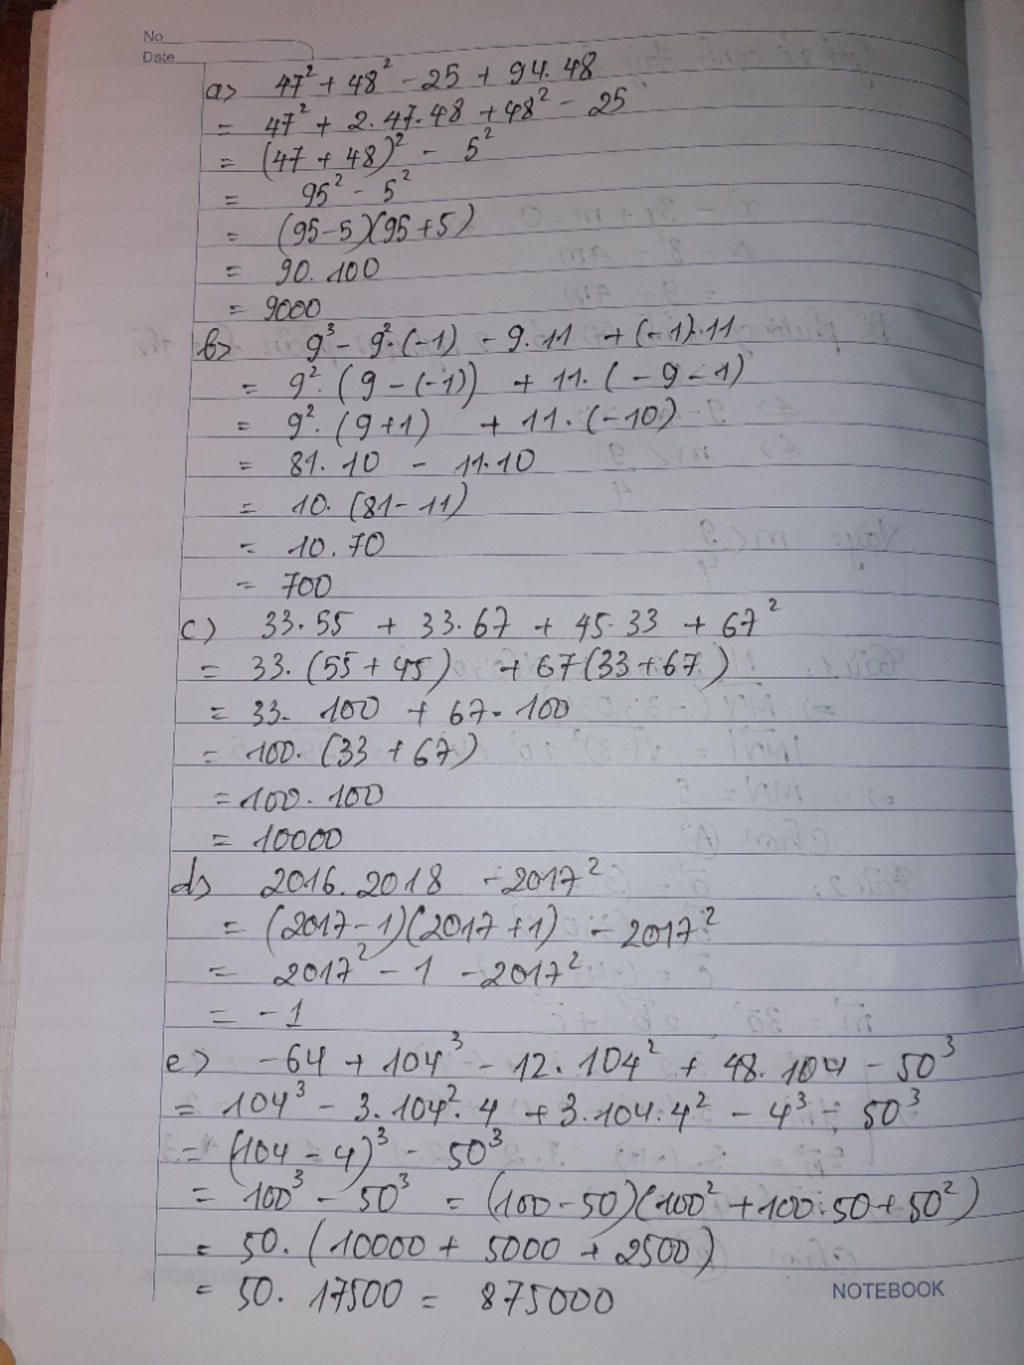 No
Date
a> 47² + 48² - 25 + 94.48
= 47² + 2.47.48 + 48² - 25
= (47 + 48)² - 5²
= 95² - 5²
= (95-5)(95+5)
= 90.100
= 9000
b> 9³ - 9².(-1) - 9.11 + (-1).11
= 9².(9-(-1)) + 11.(-9-1)
= 9².(9+1) + 11.(-10)
= 81.10 - 11.10
= 10.(81-11)
= 10.70
= 700
c) 33.55 + 33.67 + 45.33 + 67²
= 33.(55+45) + 67(33+67)
= 33.100 + 67.100
= 100.(33+67)
= 100.100
= 10000
d> 2016.2018 - 2017²
= (2017-1)(2017+1) - 2017²
= 2017² - 1 - 2017²
= -1
e> -64 + 104³ - 12.104² + 48.104 - 50³
= 104³ - 3.104².4 + 3.104.4² - 4³ - 50³
= (104-4)³ - 50³
= 100³ - 50³ = (100-50)(100² + 100.50 + 50²)
= 50.(10000 + 5000 + 2500)
= 50.17500 = 875000
NOTEBOOK